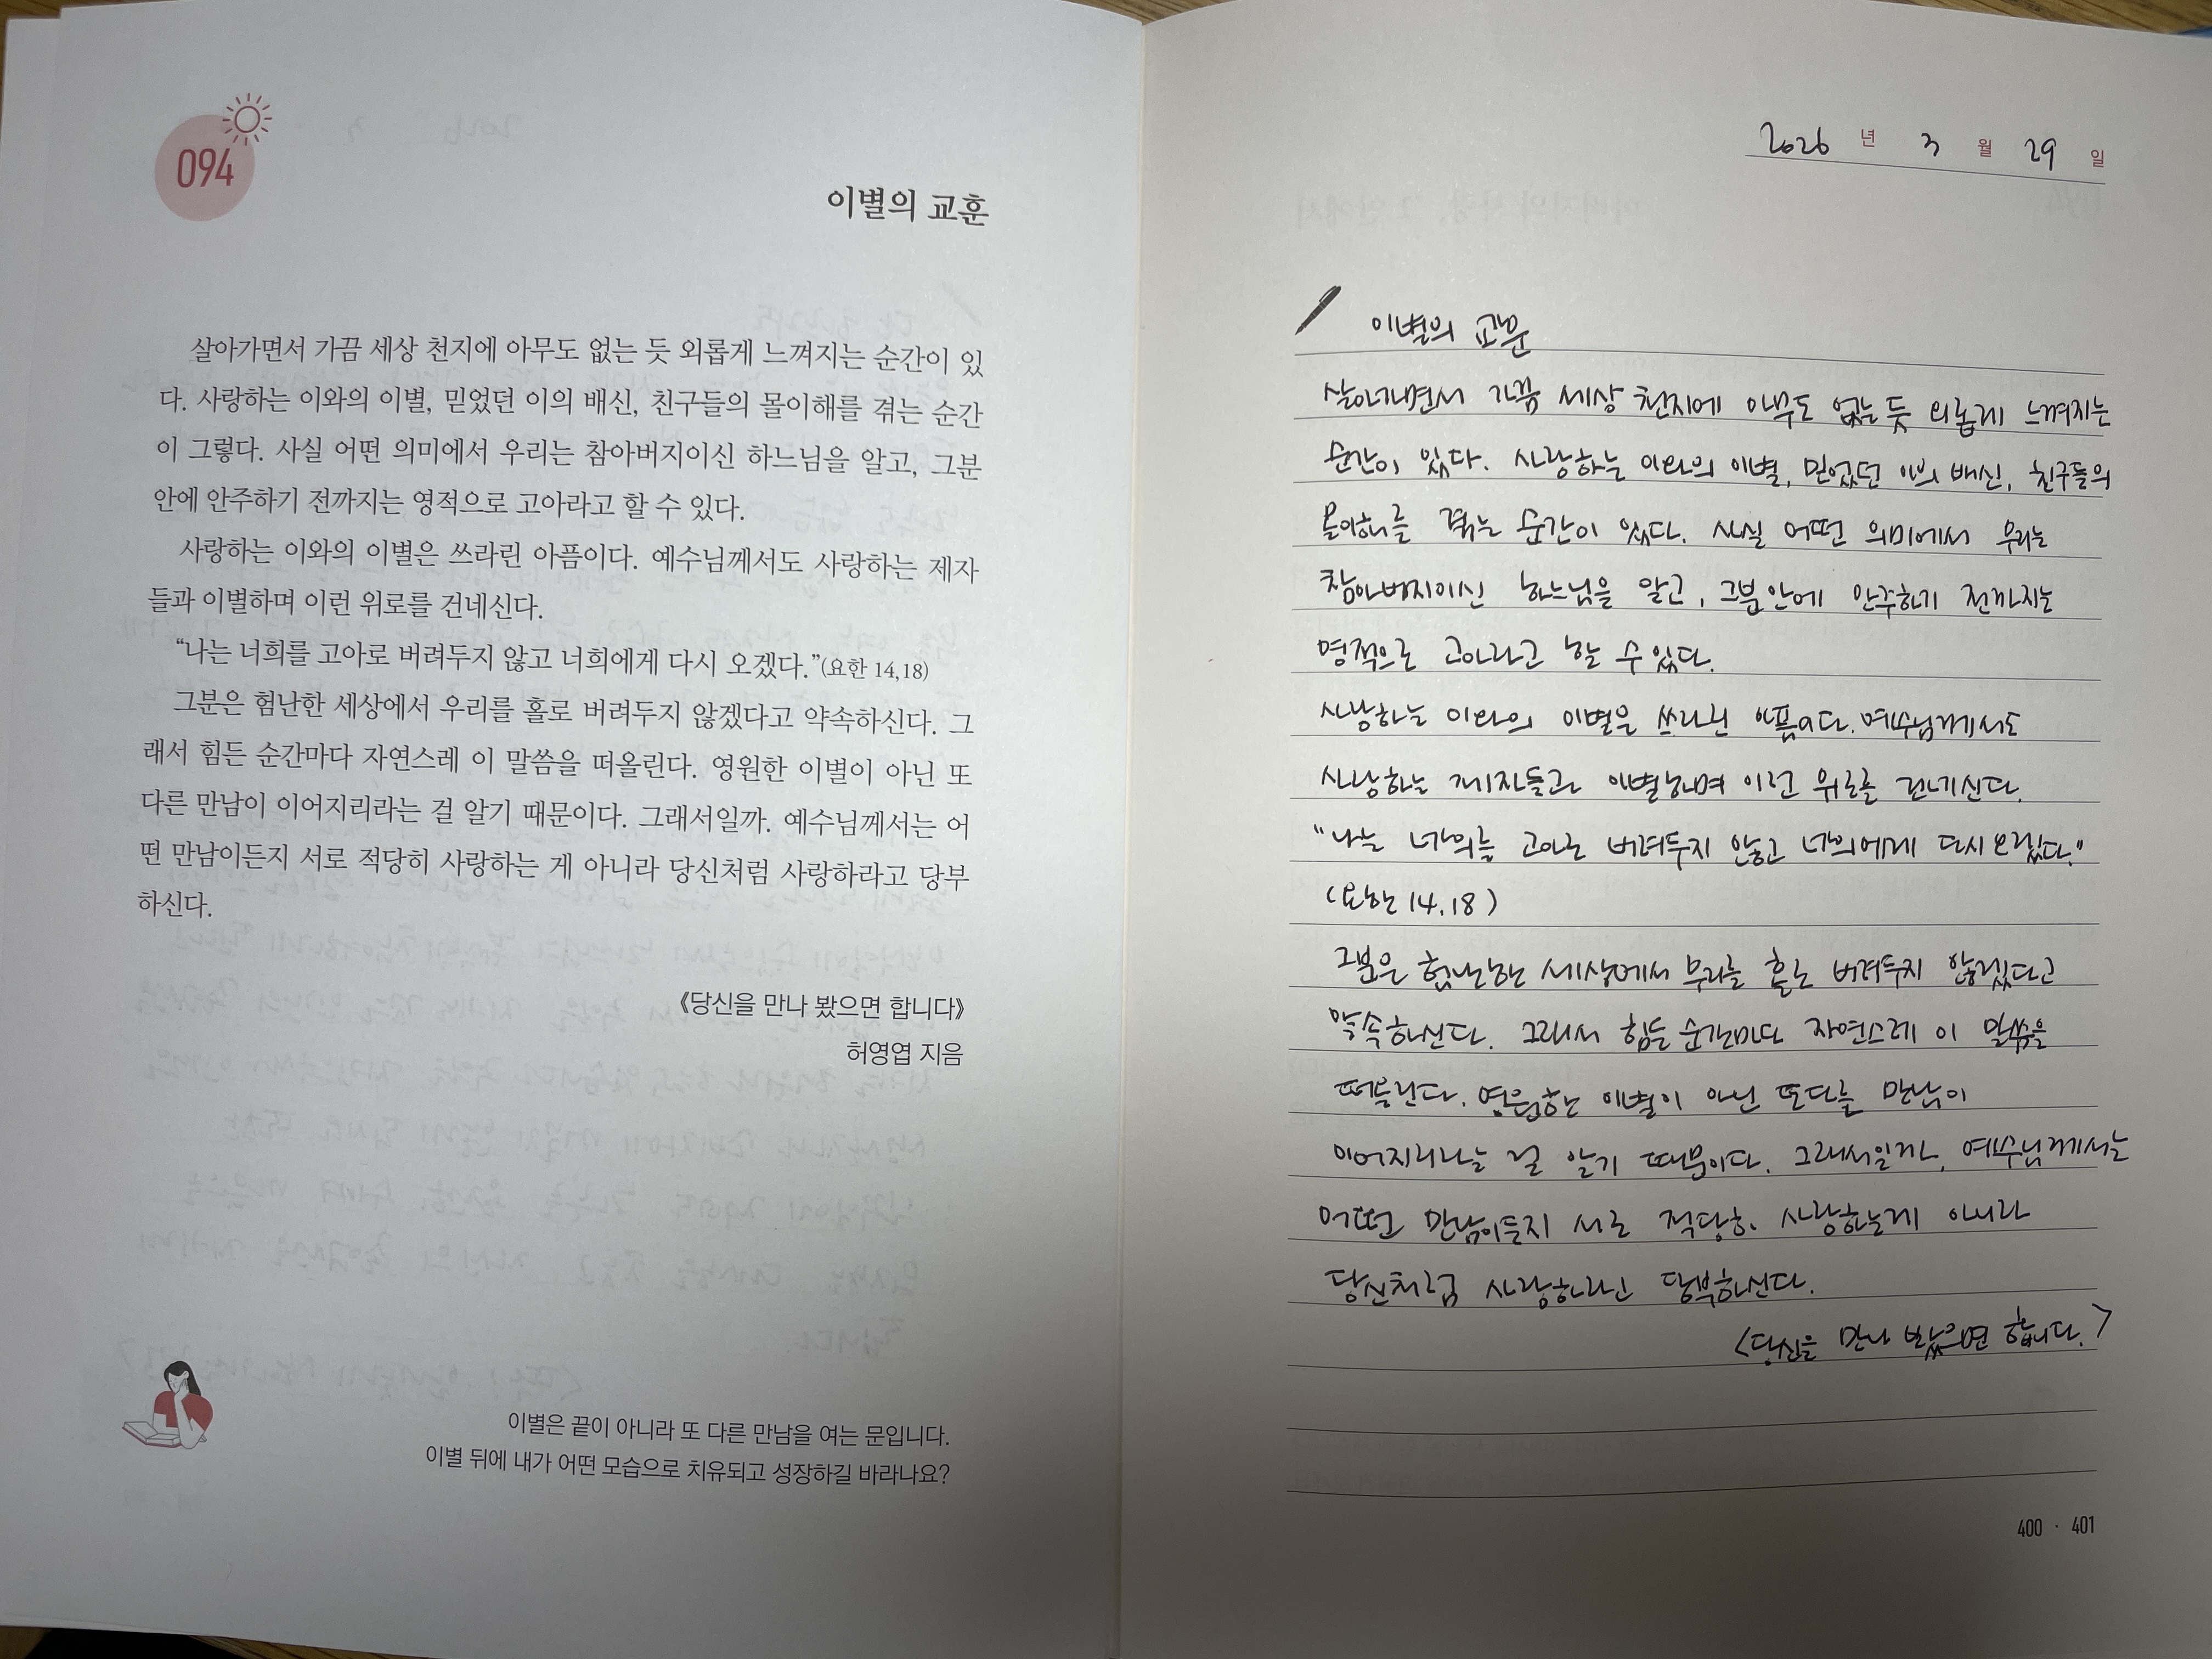 094
이별의 교훈
살아가면서 가끔 세상 천지에 아무도 없는 듯 외롭게 느껴지는 순간이 있
다. 사랑하는 이와의 이별, 믿었던 이의 배신, 친구들의 몰이해를 겪는 순간
이 그렇다. 사실 어떤 의미에서 우리는 참아버지이신 하느님을 알고, 그분
안에 안주하기 전까지는 영적으로 고아라고 할 수 있다.
사랑하는 이와의 이별은 쓰라린 아픔이다. 예수님께서도 사랑하는 제자
들과 이별하며 이런 위로를 건네신다.
“나는 너희를 고아로 버려두지 않고 너희에게 다시 오겠다.”(요한 14,18)
그분은 험난한 세상에서 우리를 홀로 버려두지 않겠다고 약속하신다. 그
래서 힘든 순간마다 자연스레 이 말씀을 떠올린다. 영원한 이별이 아닌 또
다른 만남이 이어지리라는 걸 알기 때문이다. 그래서일까. 예수님께서는 어
떤 만남이든지 서로 적당히 사랑하는 게 아니라 당신처럼 사랑하라고 당부
하신다.
《당신을 만나 봤으면 합니다》
허영엽 지음
이별은 끝이 아니라 또 다른 만남을 여는 문입니다.
이별 뒤에 내가 어떤 모습으로 치유되고 성장하길 바라나요?
2026 년 3 월 29 일
이별의 교훈
살아가면서 가끔 세상 천지에 아무도 없는 듯 외롭게 느껴지는
순간이 있다. 사랑하는 이와의 이별, 믿었던 이의 배신, 친구들의
몰이해를 겪는 순간이 있다. 사실 어떤 의미에서 우리는
참아버지이신 하느님을 알고, 그분 안에 안주하기 전까지는
영적으로 고아라고 할 수 있다.
사랑하는 이와의 이별은 쓰라린 아픔이다. 예수님께서도
사랑하는 제자들과 이별하며 이런 위로를 건네신다.
"나는 너희를 고아로 버려두지 않고 너희에게 다시 오겠다."
(요한 14.18)
그분은 험난한 세상에서 우리를 홀로 버려두지 않겠다고
약속하신다. 그래서 힘든 순간마다 자연스레 이 말씀을
떠올린다. 영원한 이별이 아닌 또다른 만남이
이어지리라는 걸 알기 때문이다. 그래서일까, 예수님께서는
어떤 만남이든지 서로 적당히 사랑하는게 아니라
당신처럼 사랑하라고 당부하신다.
<당신을 만나 봤으면 합니다.>
400 · 401